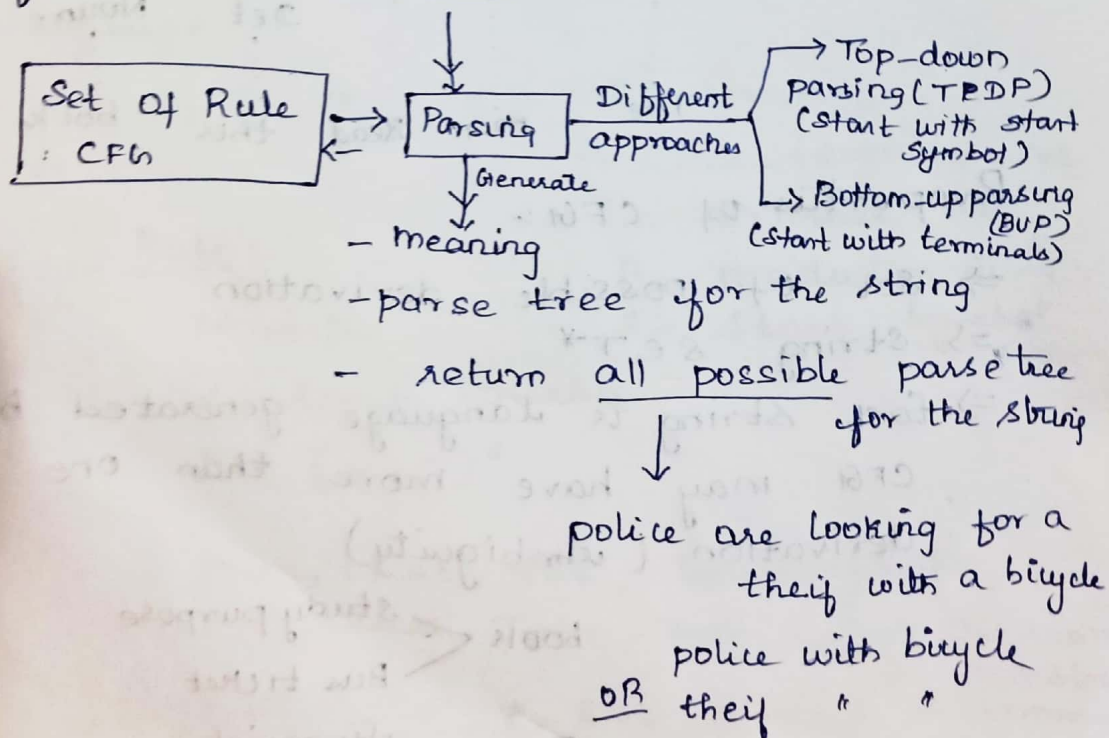 Set of Rule
: CFG
Parsing
Different
approaches
Top-down
parsing (TPDP)
(start with start
symbol)
Bottom-up parsing
(BUP)
(start with terminals)
Generate
- meaning
- parse tree for the string
- return all possible parse tree
for the string
police are looking for a
theif with a bicycle
police with bicycle
OR theif " "